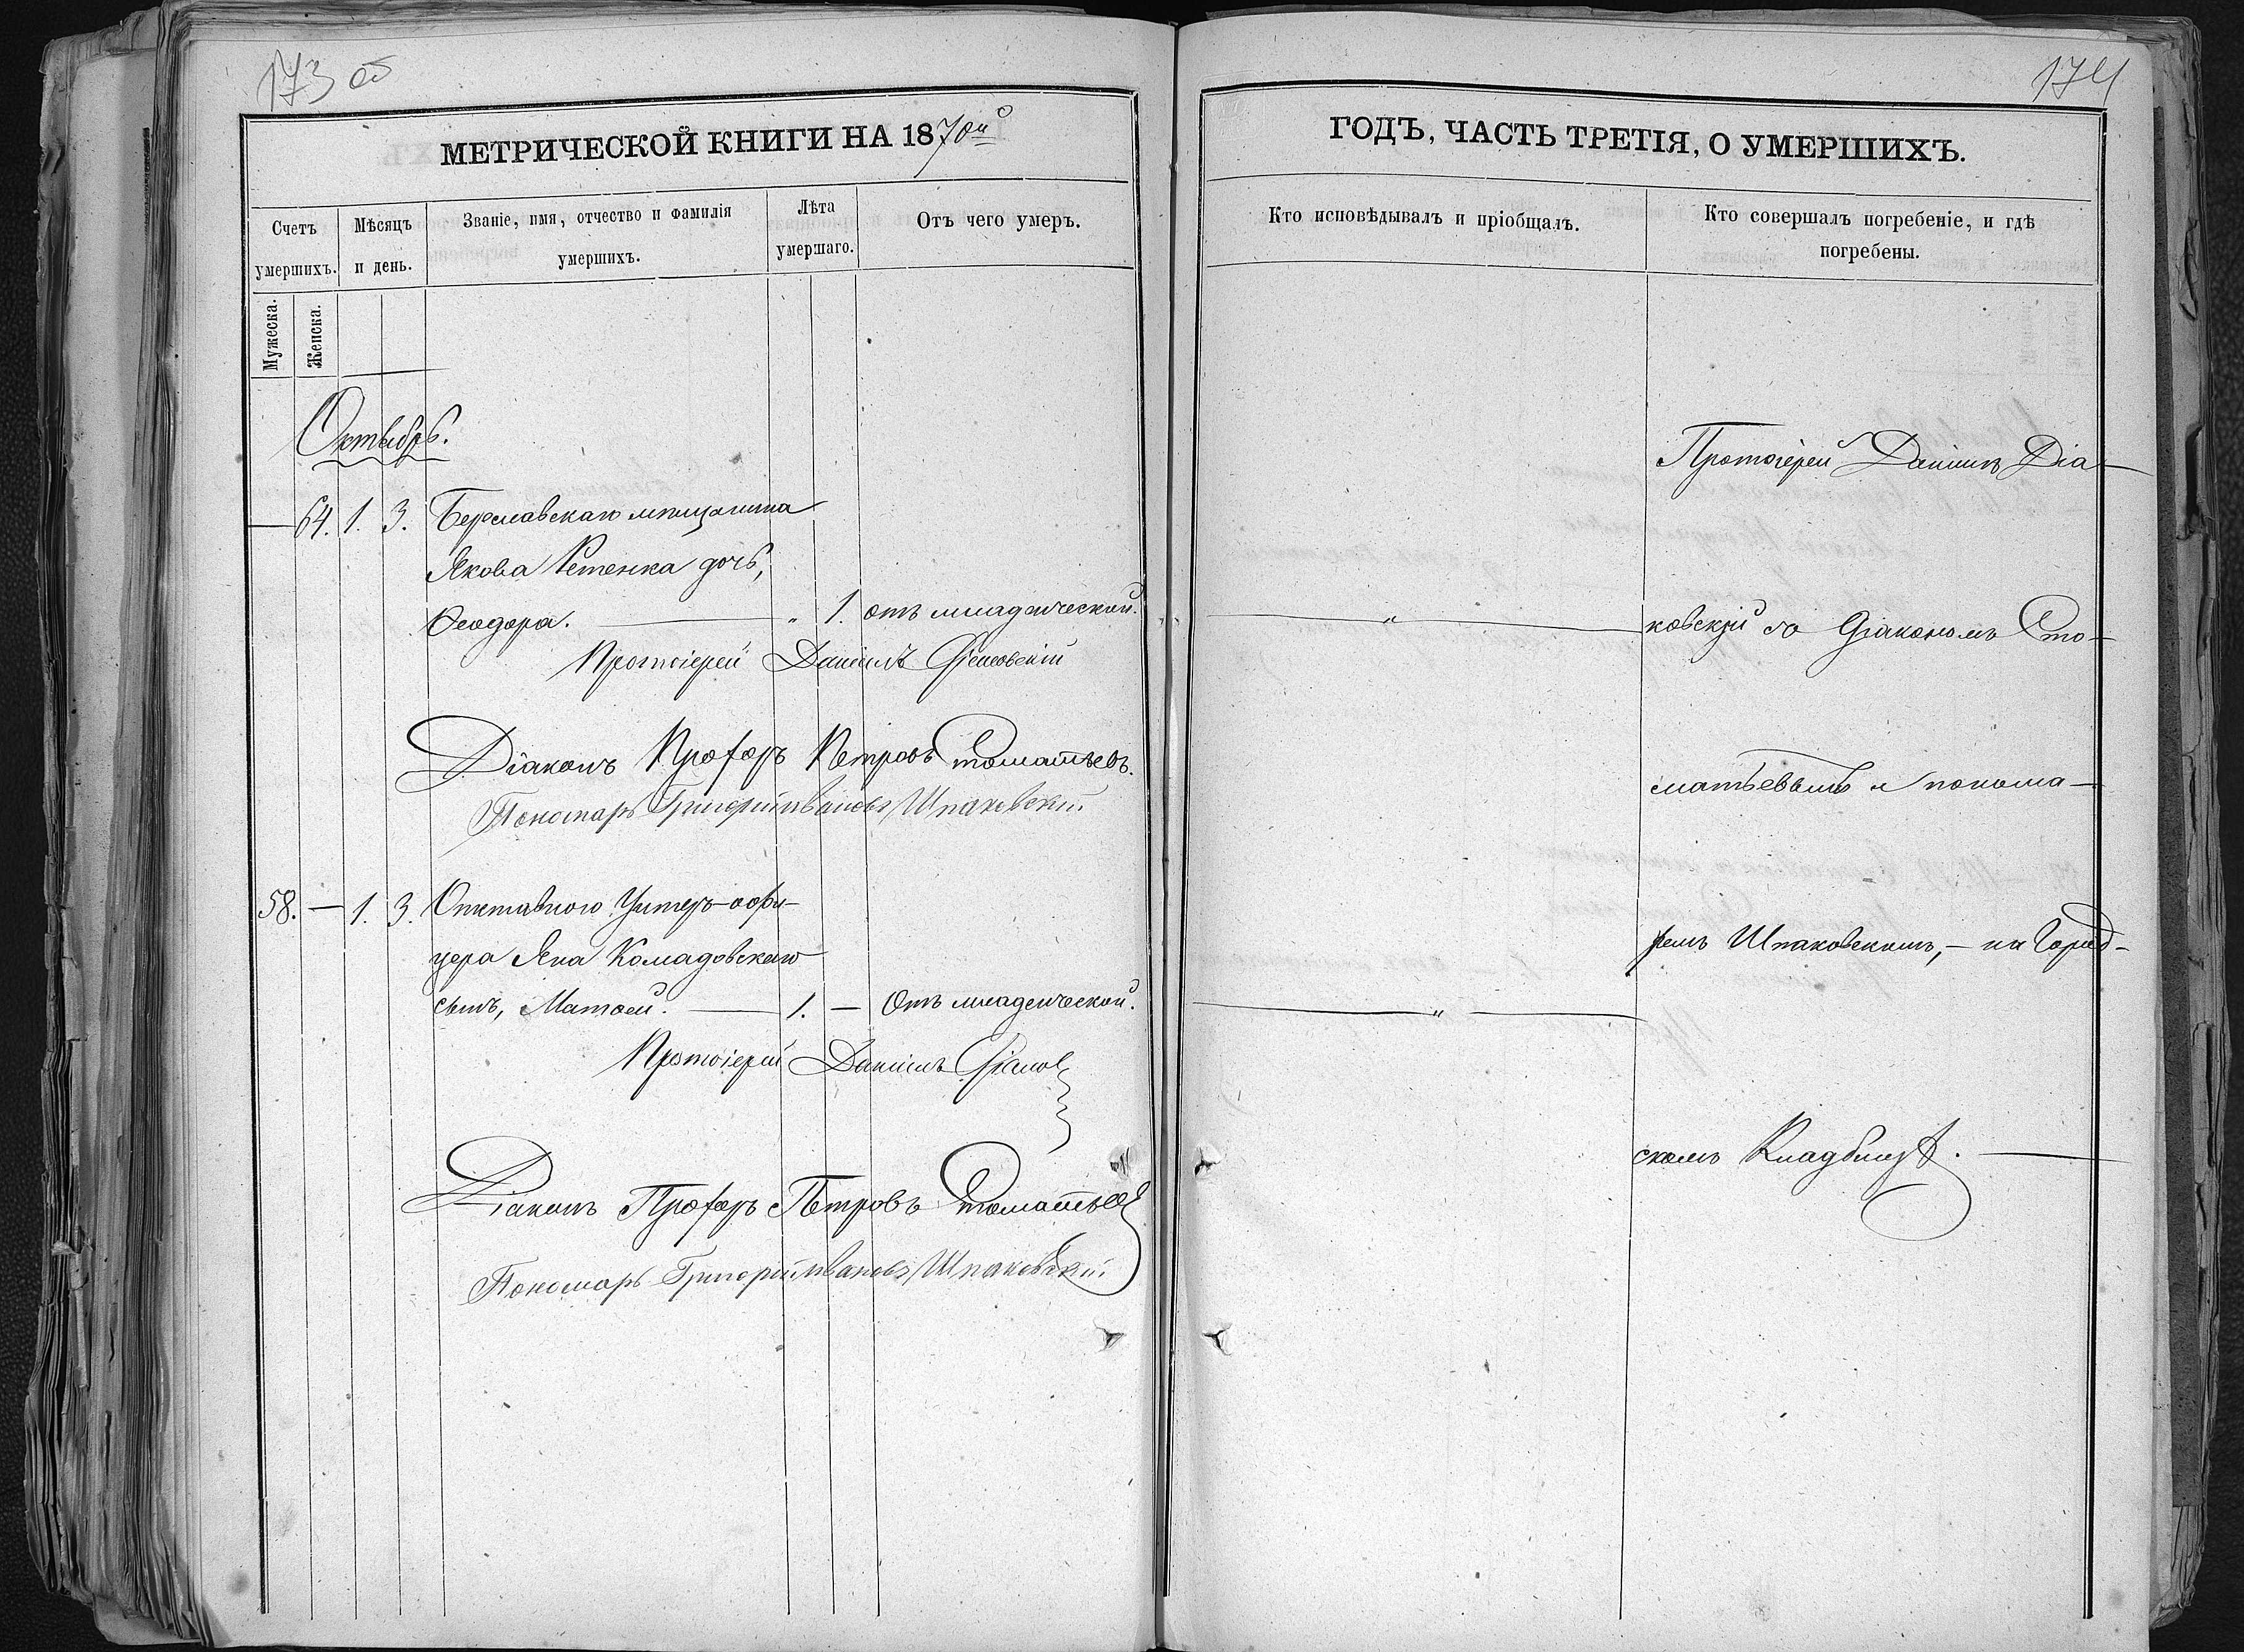 173 об
МЕТРИЧЕСКОЙ КНИГИ НА 1870й
Счетъ умершихъ.
Мѣсяцъ и день.
Званіе, имя, отчество и фамилія умершихъ.
Лѣта умершаго.
Отъ чего умеръ.
Мужеска.
Женска.
Октябрь.
— 64. 1. 3. Бериславскаго мѣщанина
Якова Ретенка дочь,
Ѳеодора. — " 1. отъ младенческой.
Протоіерей Даніилъ Діаковскій
Діаконъ Прохоръ Петровъ Стоматьевъ.
Пономарь Григорій Ивановъ Шпаковскій
58. — 1. 3. Отставного Унтеръ-офи-
цера Яна Комадовскаго
сынъ, Матѳей. — 1. — Отъ младенческой.
Протоіерей Даніилъ
Діаконъ Прохоръ Петровъ Стоматьев
Пономарь Григорій Ивановъ Шпаковскій
174
ГОДЪ, ЧАСТЬ ТРЕТІЯ, О УМЕРШИХЪ.
Кто исповѣдывалъ и пріобщалъ.
Кто совершалъ погребеніе, и гдѣ
погребены.
Протоіерей Даніилъ Діа-
— " — ковскій со Діакономъ Сто-
матьевымъ и понома-
ремъ Шпаковскимъ, — на Город-
— " —
скомъ Кладбищѣ. —